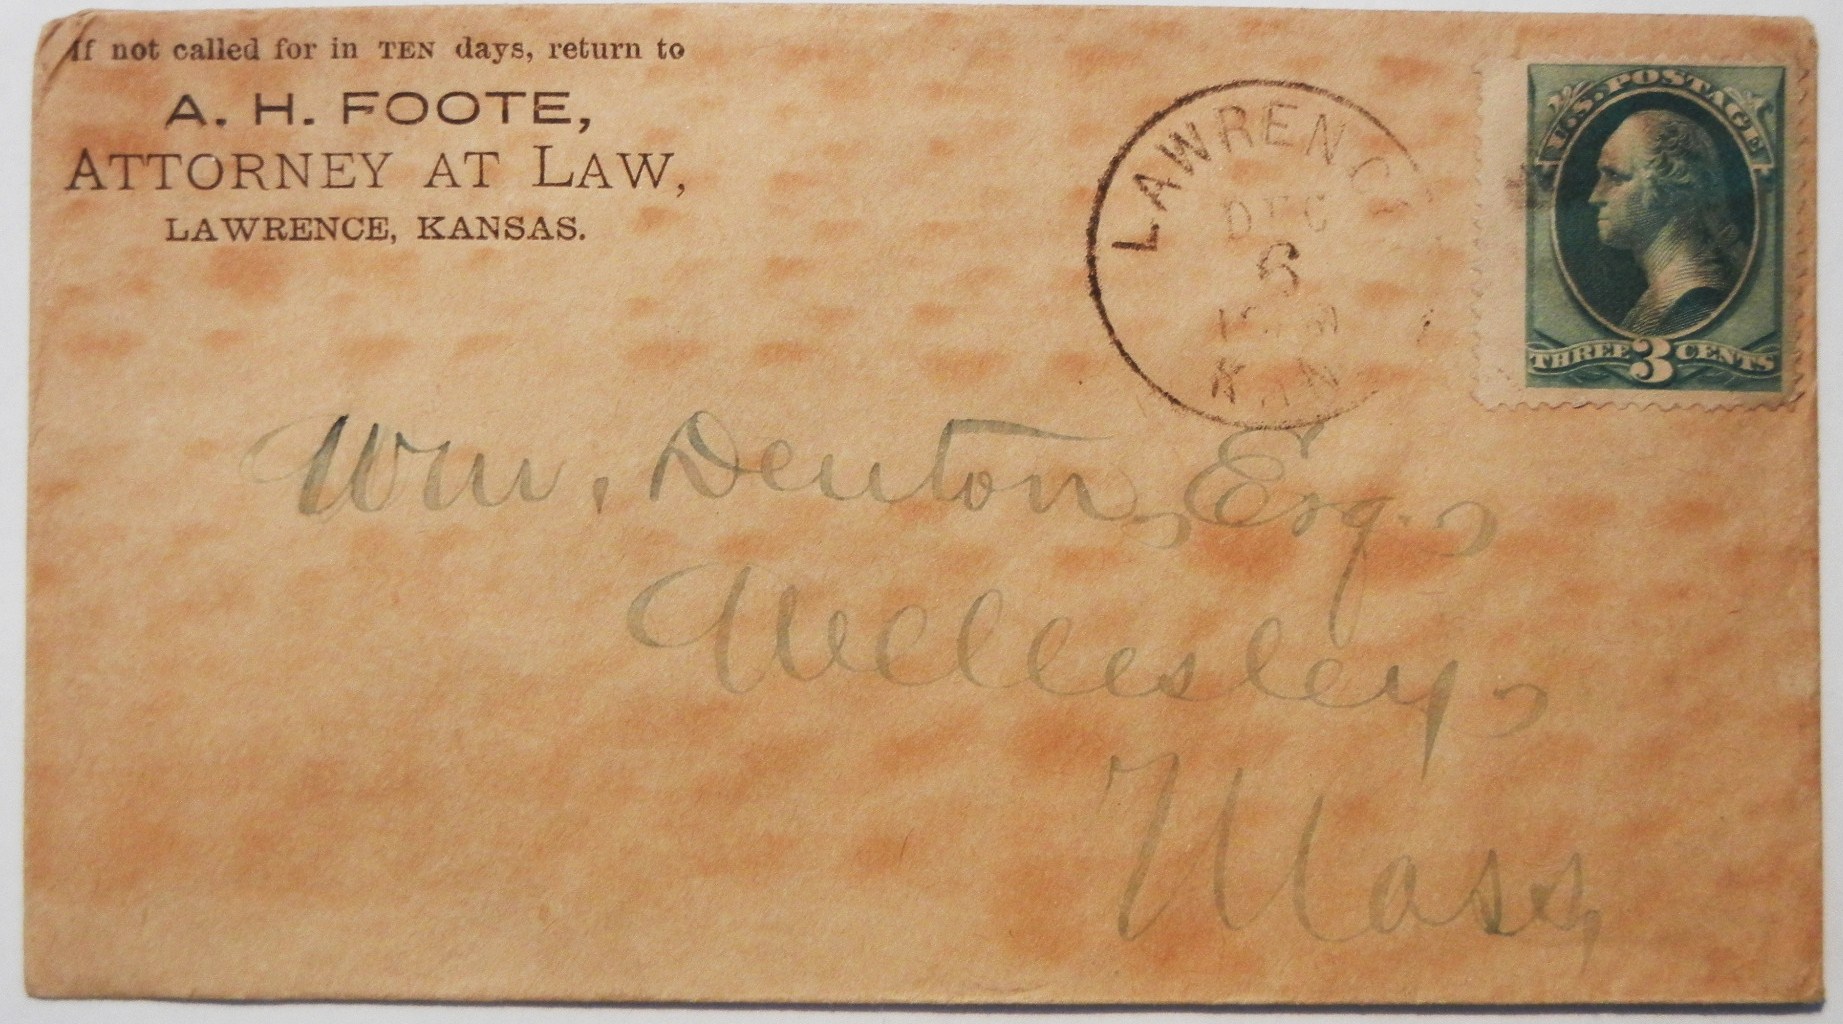 If not called for in TEN days, return to
A. H. FOOTE,
ATTORNEY AT LAW,
LAWRENCE, KANSAS.
LAWRENCE
DEC
6
KAN
U.S. POSTAGE
THREE 3 CENTS
Wm. Denton, Esq.,
Wellesley,
Mass,